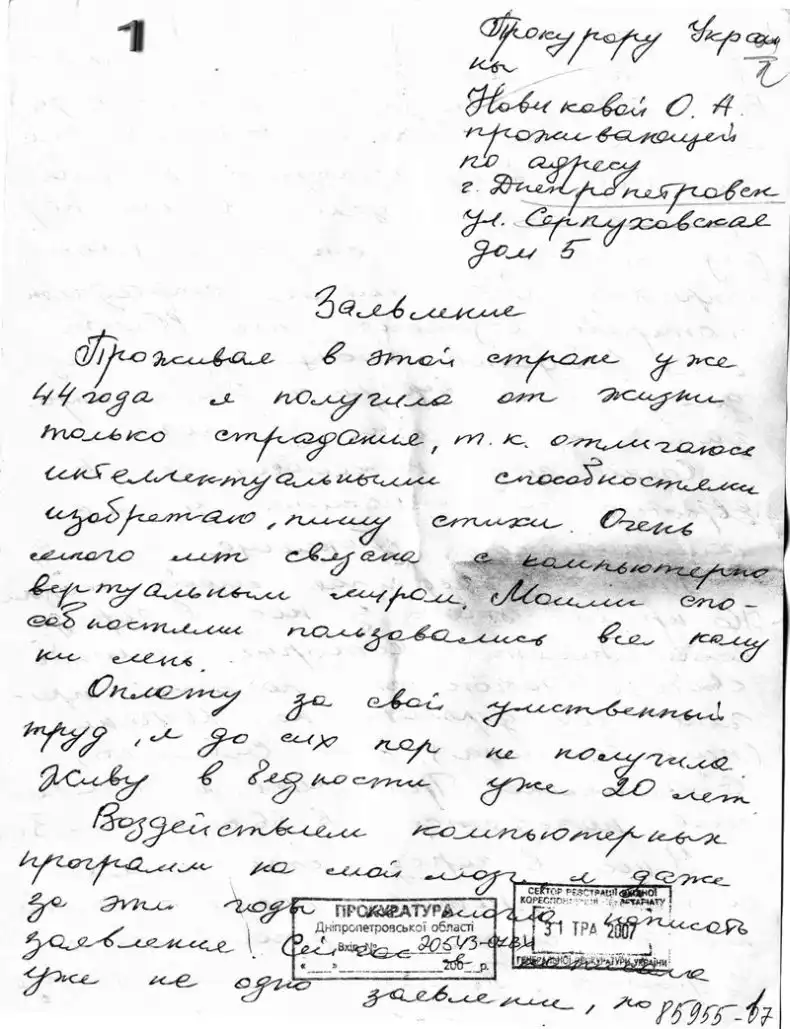 1
Прокурору Украи
ны
Новиковой О. А.
проживающей
по адресу
г. Днепропетровск
ул. Серпуховская
дом 5
Заявление
Проживая в этой стране уже
44 года я получила от жизни
только страдания, т. к. отличаюсь
интеллектуальными способностями
изобретаю, пишу стихи. Очень
много лет связана с компьютерно
вертуальным миром. Моими спо-
собностями пользовались все кому
ни лень.
Оплату за свой умственный
труд, я до сих пор не получила.
Живу в бедности уже 20 лет.
Воздействием компьютерных
программ на мой мозг, я даже
за эти годы могла написать
заявление! Сейчас
уже не одно заявление, но
ПРОКУРАТУРА
Дніпропетровської області
Вхід №
200 р.
СЕКТОР РЕЄСТРАЦІЇ
31 ТРА 2007
ГЕНЕРАЛЬНОЇ ПРОКУРАТУРИ УКРАЇНИ
85955-07